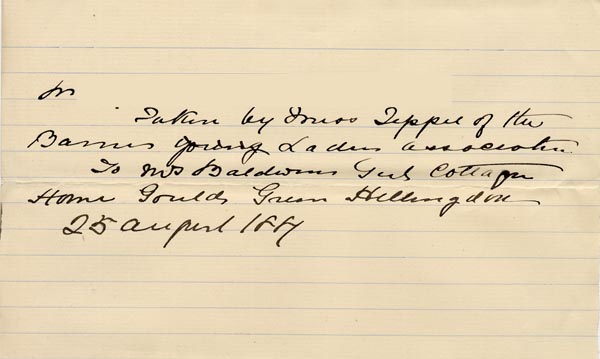 Taken by Miss Teppel of the
Barnes young Ladies association
To Mrs Baldwins Girls Cottage
Home Goulds Green Hillingdon
25 August 188